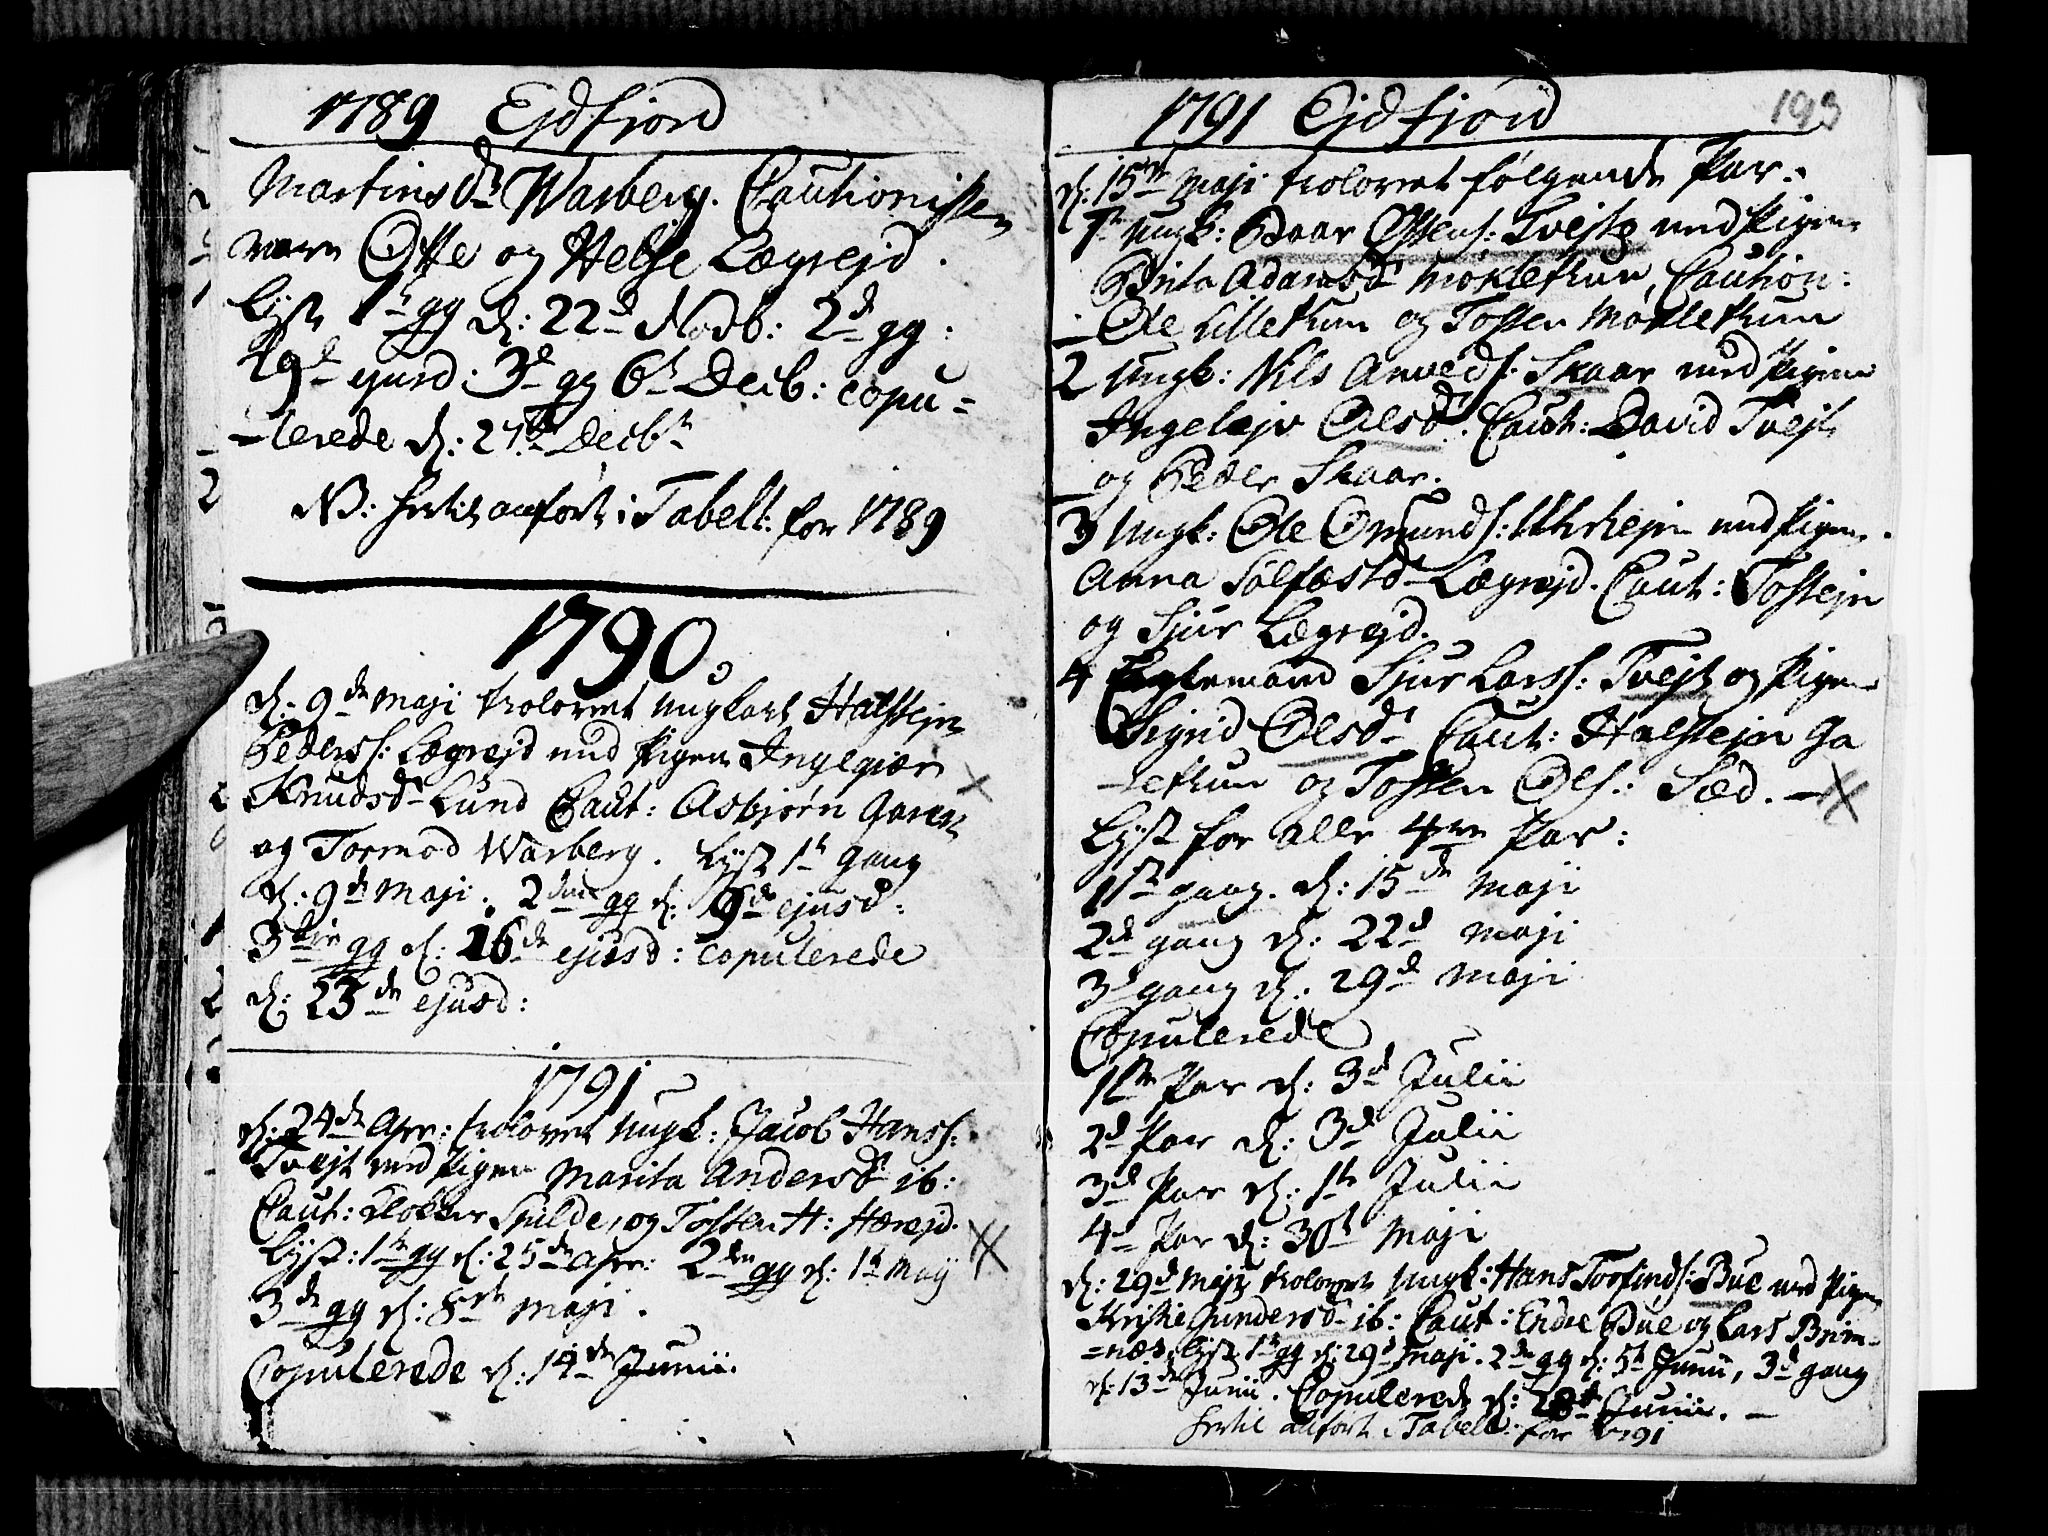 1789 Ejdfjord
Martinsdr Warberg. Cautionister
vare Otte og Helje Lægrejd.
Lyst 1te gg d: 22de Novb: 2de gg:
29de ejusd: 3de gg 6te Decb: copu=
=lerede d: 27de Decbr
NB: hertil anført i Tabell: for 1789
1790.
d: 9de Maji trolovet ungkarl Halstejn
Peders: Lægrejd med Pigen Ingegier
Knudsdr Lund Caut: Asbjørn Garen
og Tormod Warberg. Lyst 1te gang
d: 9de Maji. 2den gg d: 9de ejusd:
3die gg d: 16de ejusd: copulerede
d: 23de ejusd:
1791
d: 24de Apr: trolovet Ungk: Jacob Hanss:
Tvejt med Pigen Marita Andersdr ib:
Caut: Spilde, og Tosten H: Hærejd.
Lyst: 1te gg d: 25de Apr: 2den gg d: 1te Maij
3de gg d: 8de Maji.
Copulerede d: 14de Junii.
1791 Ejdfjord
193
d: 15de Maji trolovet følgende Par.
1te Ungk: Baar Tvejt med Pigen
Brita Adamsdr Møkletun, Caution:
Ole Lilletun og Tosten Møkletun
2 Ungk: Nils Anveds: Skaar med Pigen
Ingelejv Olsdr. Caut: David Tvejt
og Peder Skaar.
3 Ungk: Ole Omunds: Uhrhejn med Pigen
Anna Sølfæstdr Lægrejd. Caut: Tostejn
og Sjur Lægrejd.
4 Egtemand Sjur Larss: Tvejt og Pigen
Sigrid Olsdr Caut: Halstejn Ga
=letun og Tosten Ols: Sæd.
Lyst for alle 4re Par:
1ste gang. d: 15de Maji
2de gang d: 22de Maji
3de gang d: 29de Maji
Copulerede
1ste Par d: 3de Julii
2de Par d: 3de Julii
3de Par d: 1te Julii
4de Par d: 30te Maji
d: 29de Maji trolovet Ungk: Hans Torfinds: Bue med Pigen
Kristie Gundersdr ib: Caut: Endre Bue og Lars Brim=
=næs, lyst 1te gg d: 29de Maji. 2de gg d: 5te Junii, 3de gang
d: 13de Junii. Copulerede d: 28de Junii.
hertil anført i Tabell: for 1791